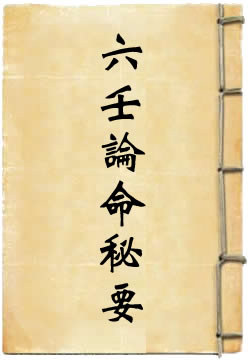 六壬論命秘要